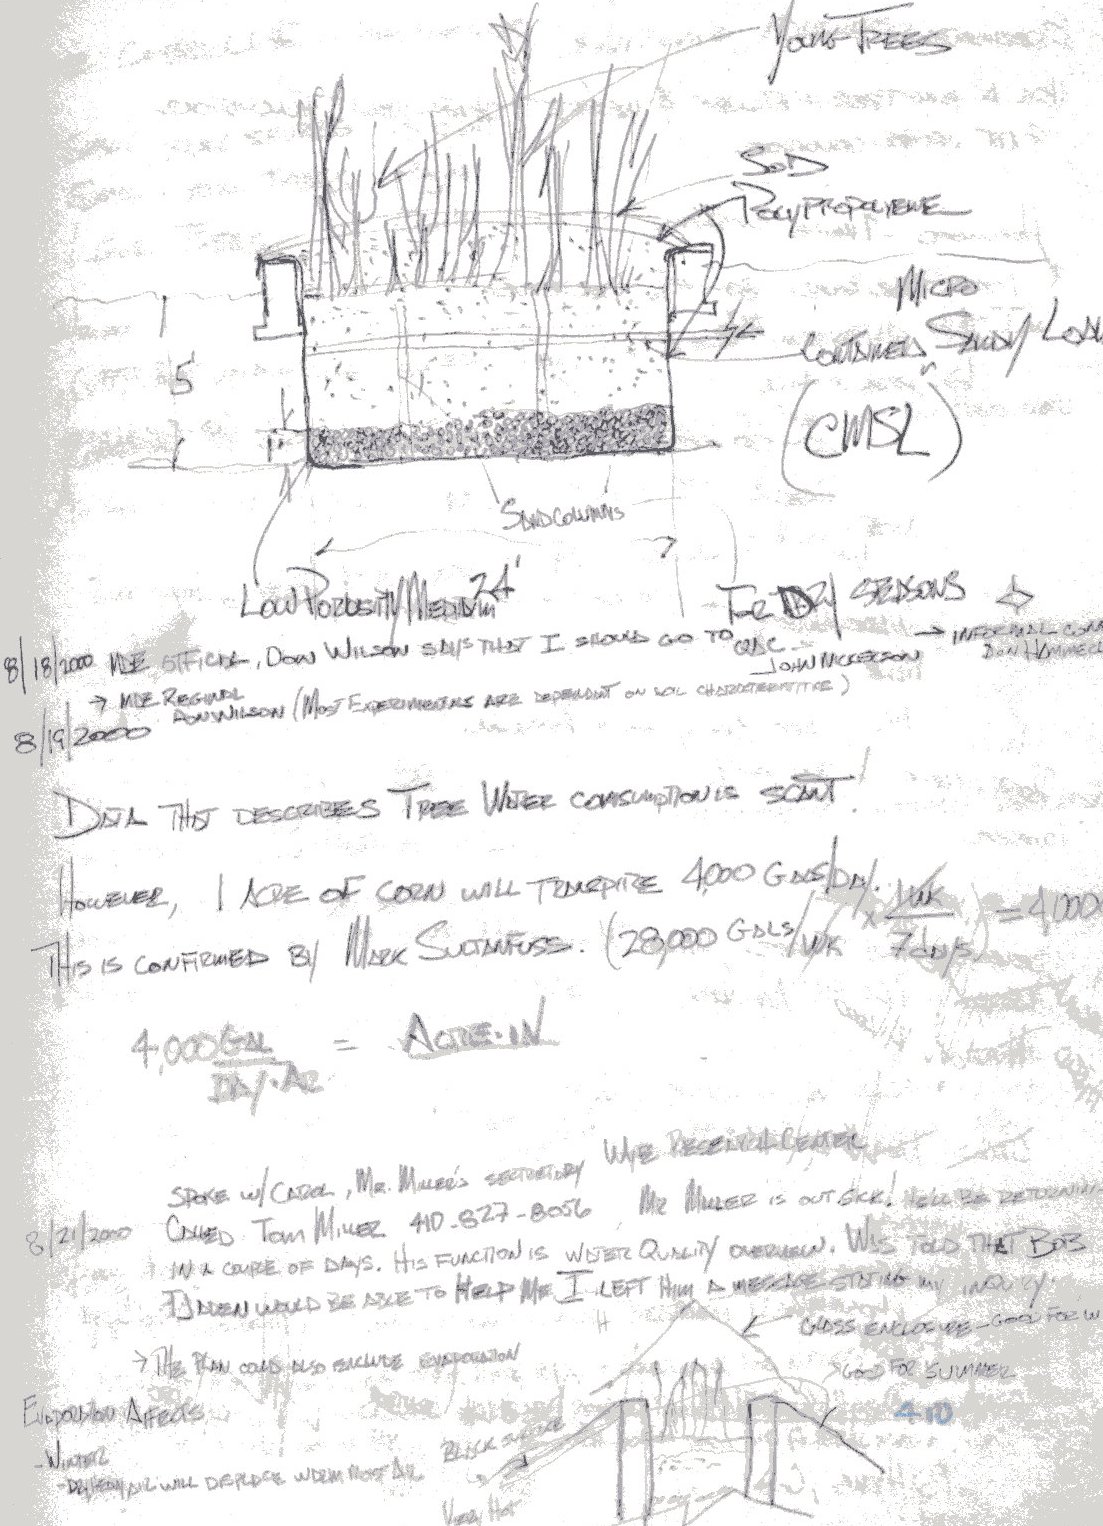 Young Trees
Sod
Polypropolyene
Micro
Contained Sandy Loa
(CMSL)
5'
1'
Sand Columns
24'
Low Porosity Medium
For Dry Seasons
8/18/2000 MDE Official, Don Wilson says that I should go to
John Nickerson
→ Informal Com
Don Hammerl
→ MDE Regional
Don Wilson (Most Experiments are dependant on soil
8/19/2000
Data that describes Tree Water consumption is scant!
However, 1 Acre of corn will transpire 4,000 Gals/Day.
This is confirmed by Mark Sultanfuss. (28,000 Gals/wk × wk/7days) = 4,000
4,000 Gal/Day·Ac = Acre·in
Wye Research Center
Spoke w/ Carol, Mr. Miller's secretary
8/21/2000 Called Tom Miller 410-827-8056 Mr Miller is out sick! He'll be returning
in a couple of days. His function is Water Quality overview. Was told that Bob
would be able to Help Me. I left Him a message stating my inquiry.
Glass enclosure - Good for w
→ The Plan could also include evaporation
Good for Summer
Evaporation Affects
410
- Winter
Black surface
air will displace warm moist air
Very Hot